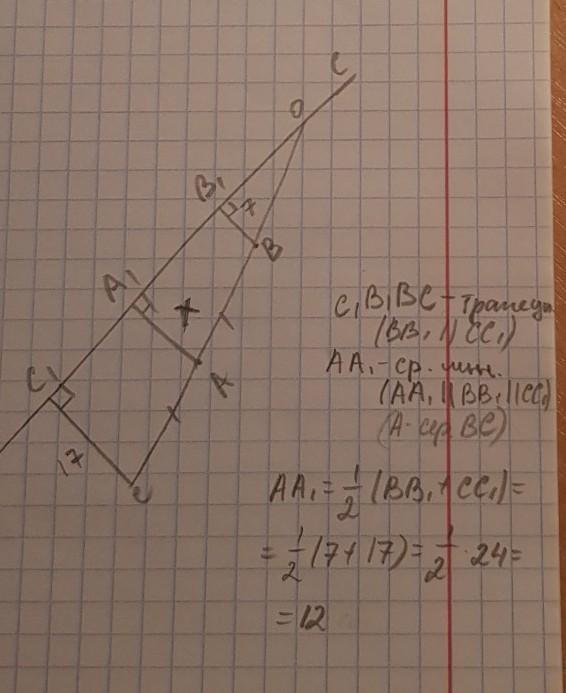 C
O
B₁
7
B
A₁
x
A
C₁
17
C
C₁B₁BC - трапеция
(BB₁ || CC₁)
AA₁ - ср. лин.
(AA₁ || BB₁ || CC₁)
(A - сер BC)
AA₁ = 1/2 (BB₁ + CC₁) =
= 1/2 (7 + 17) = 1/2 · 24 =
= 12